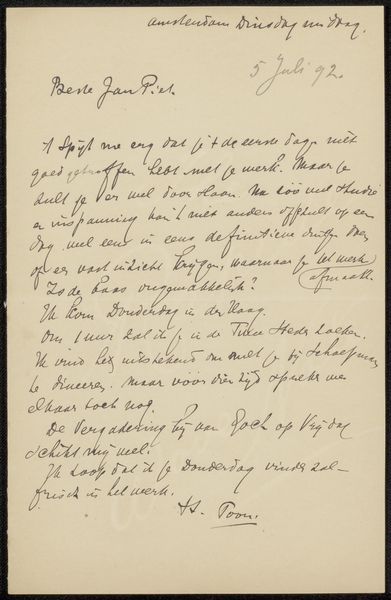 Amsterdam Dinsdag middag.
5 Juli 92.
Beste Jan Piet.
't Spijt me erg dat je de eerste dag niet
goed getroffen hebt met je werk. Maar je
zult je er wel door slaan. Na zoo veel studie
en inspanning kan 't niet anders of je zult op een
dag wel eens in eens de definitieve
of er vast inzicht krijgen, waarnaar je het werk
afmaakt.
Is de baas ongemakkelijk?
Ik kom Donderdag in den Haag.
Om 1 uur zal ik je in de Twee Steden zoeken.
Ik vind het uitstekend om met je bij Schaepman
te dineeren. Maar vóór dien tijd spreken we
elkaar toch nog.
De Vergadering bij van Gogh op Vrijdag
schikt mij wel.
Ik hoop dat ik je Donderdag vinden zal
frisch in het werk.
tt. Toon.